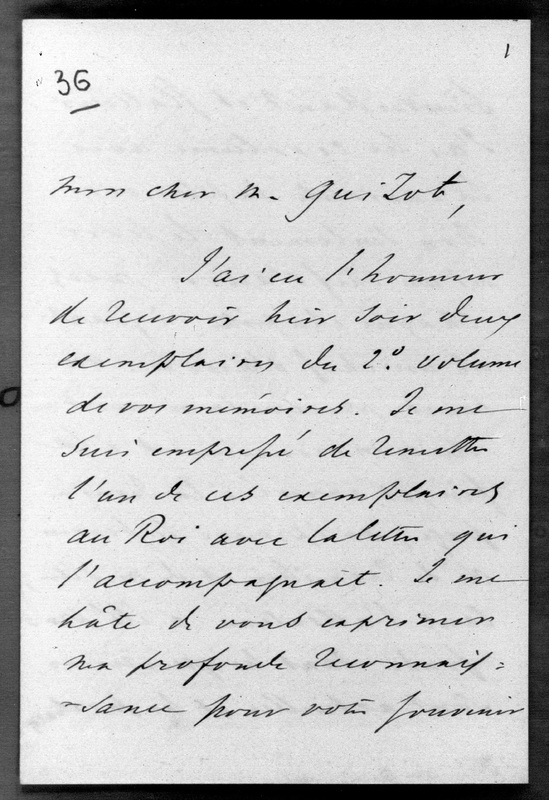 1
36
Mon cher M. Guizot,
J'ai eu l'honneur
de recevoir hier soir deux
exemplaires du 2.º volume
de vos mémoires. Je me
suis empressé de remettre
l'un de ces exemplaires
au Roi avec la lettre qui
l'accompagnait. Je me
hâte de vous exprimer
ma profonde reconnais=
=sance pour votre souvenir